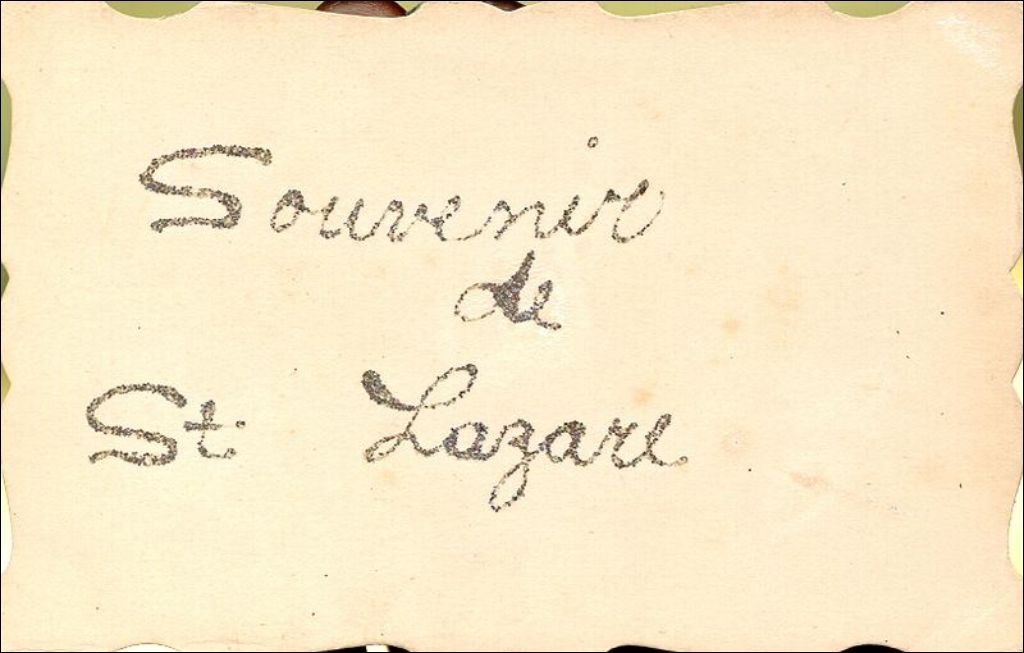 Souvenir
de
St. Lazare